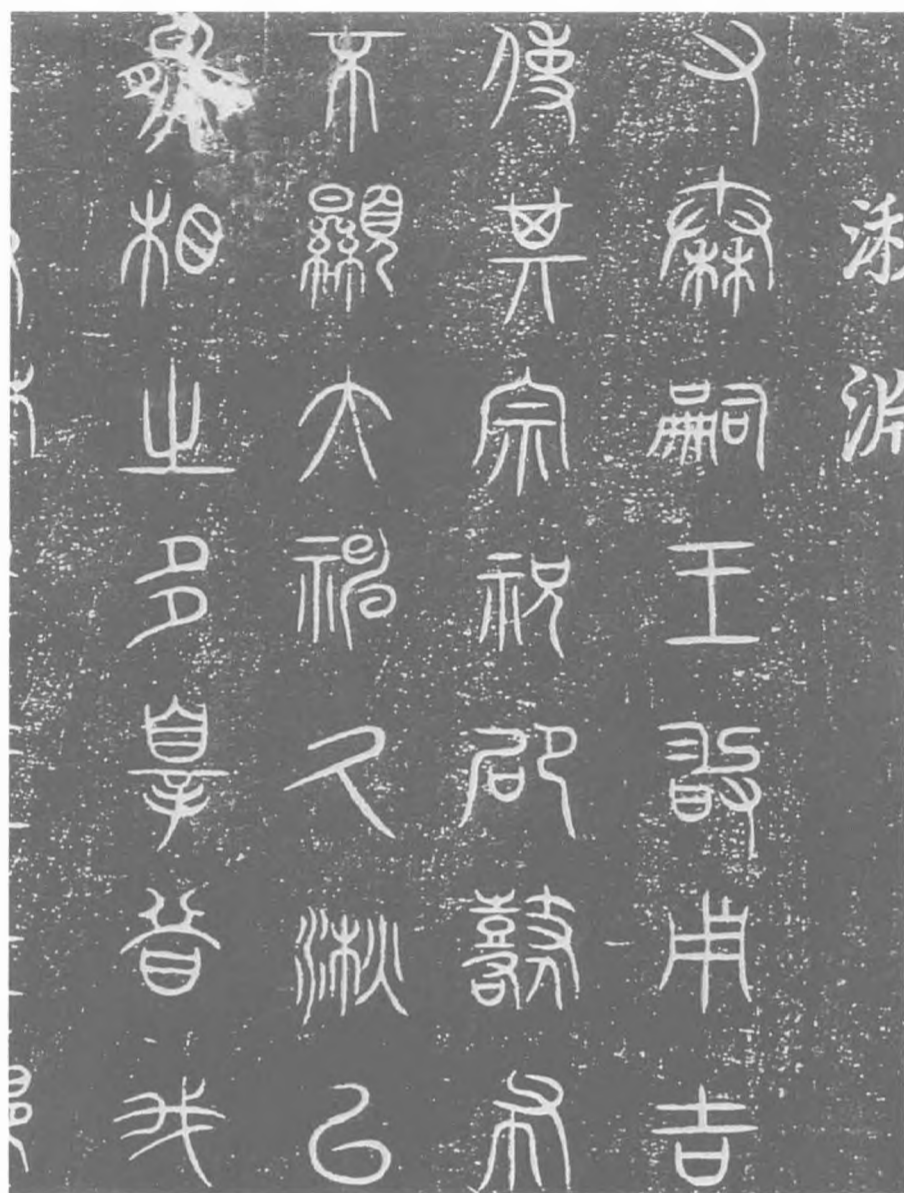 湫淵
又秦嗣王敢用吉
使其宗祝邵鼛布
不顯大神久湫㠯
熊相之多辠昔我